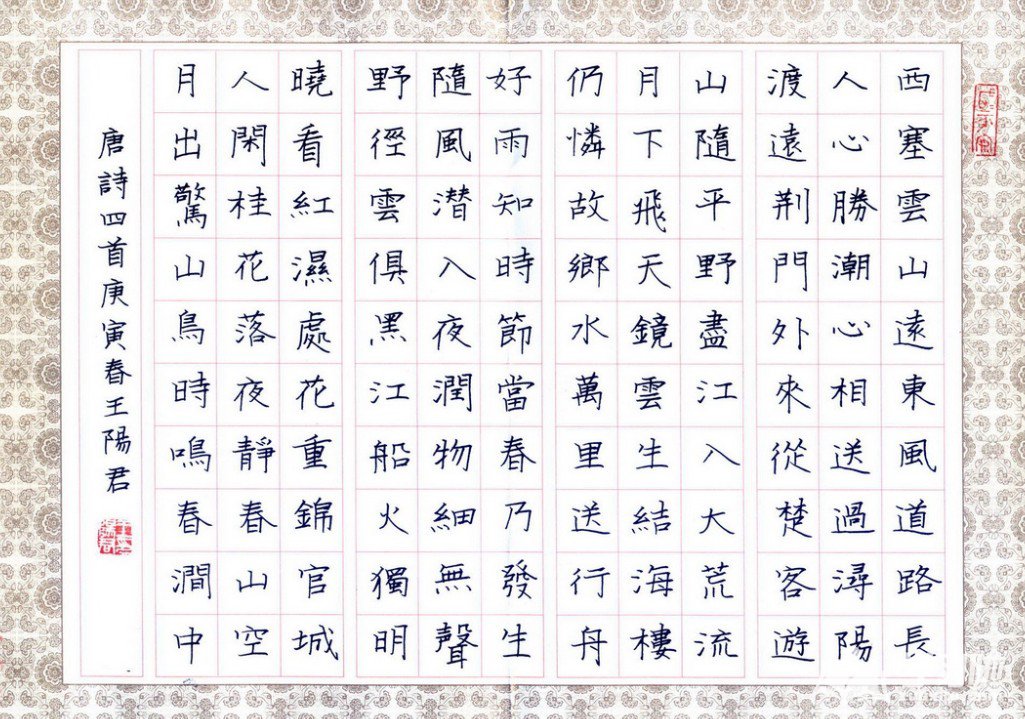 西塞雲山遠東風道路長
人心勝潮心相送過潯陽
渡遠荆門外來從楚客遊
山隨平野盡江入大荒流
月下飛天鏡雲生結海樓
仍憐故鄉水萬里送行舟
好雨知時節當春乃發生
隨風潜入夜潤物細無聲
野徑雲俱黑江船火獨明
曉看紅濕處花重錦官城
人閑桂花落夜靜春山空
月出驚山鳥時鳴春澗中
唐詩四首庚寅春王陽君